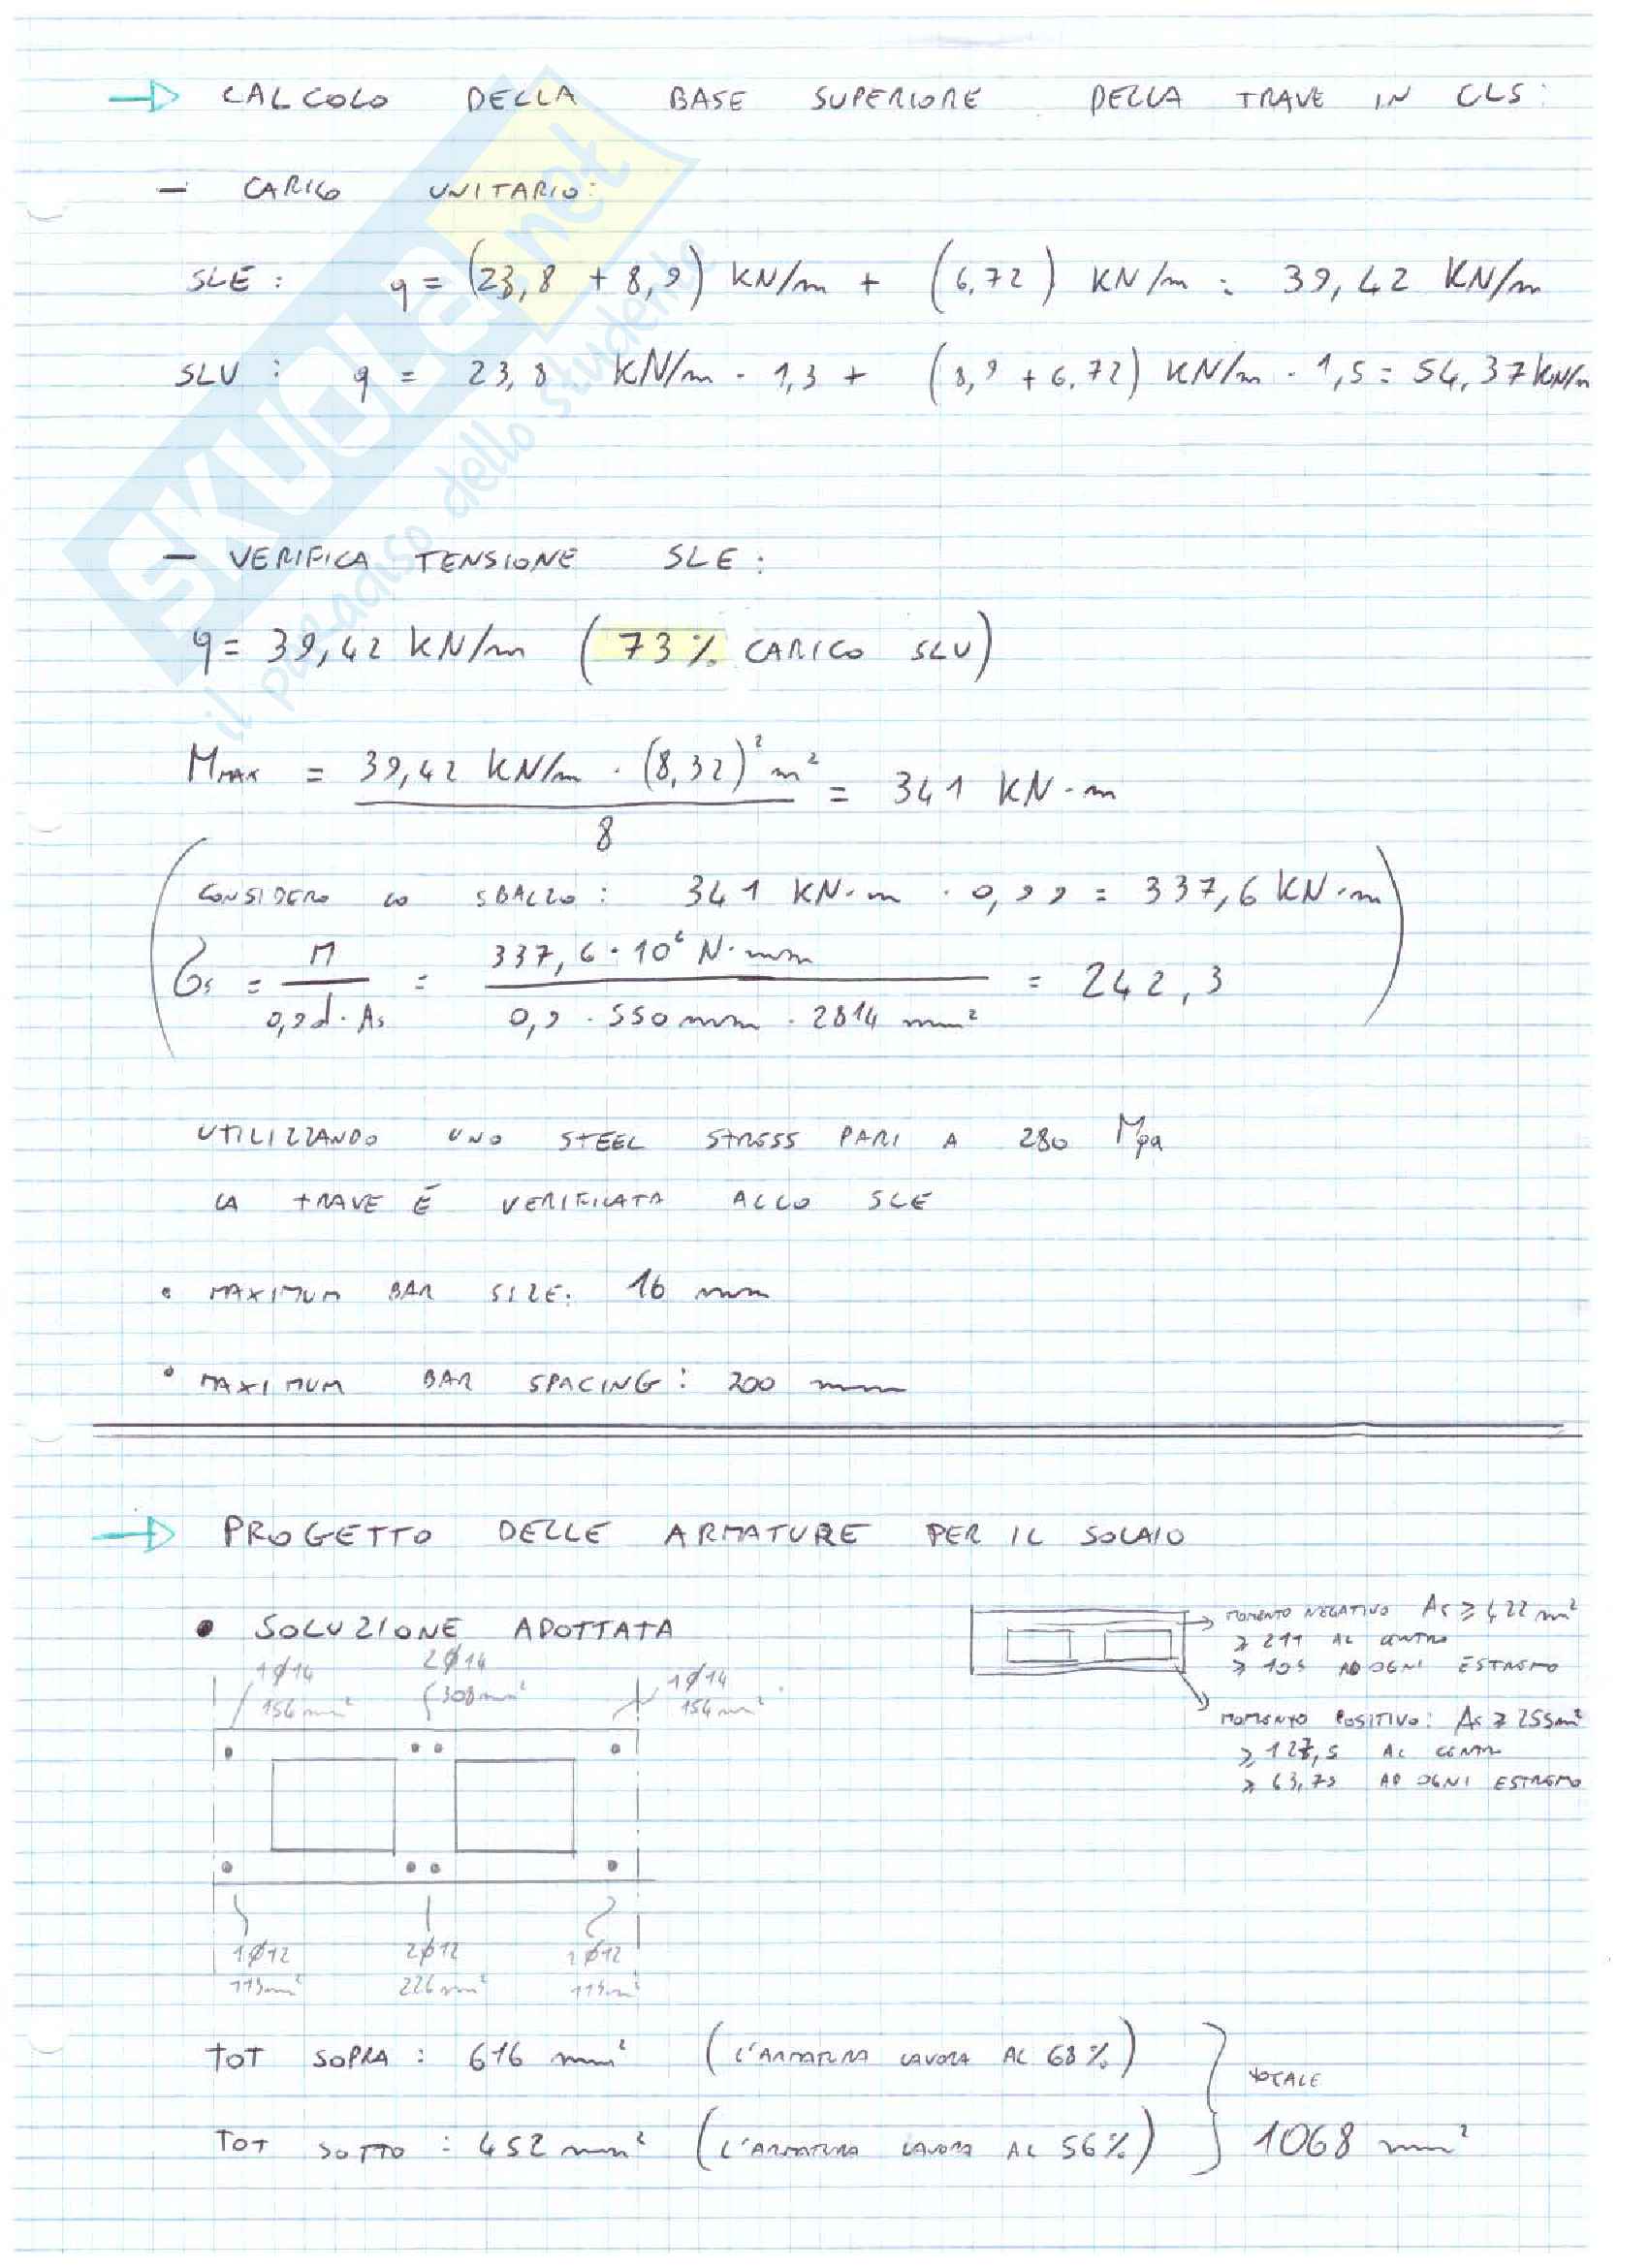 CALCOLO DELLA BASE SUPERIORE DELLA TRAVE IN CLS:
- CARICO UNITARIO:
SLE: q = (23,8 + 8,9) KN/m + (6,72) KN/m = 39,42 KN/m
SLU: q = 23,8 KN/m · 1,3 + (8,9 + 6,72) KN/m · 1,5 = 54,37 KN/m
- VERIFICA TENSIONE SLE:
q = 39,42 KN/m (73% CARICO SLU)
MMAX = 39,42 KN/m · (8,32)² m² / 8 = 341 KN·m
(CONSIDERO LO SBALZO: 341 KN·m · 0,99 = 337,6 KN·m
σs = M / 0,9d · As = 337,6 · 10⁶ N·mm / 0,9 · 550 mm · 2814 mm² = 242,3)
UTILIZZANDO UNO STEEL STRESS PARI A 280 Mpa
LA TRAVE È VERIFICATA ALLO SLE
• MAXIMUM BAR SIZE: 16 mm
• MAXIMUM BAR SPACING: 200 mm
PROGETTO DELLE ARMATURE PER IL SOLAIO
• SOLUZIONE ADOTTATA
1Ø14 2Ø14 1Ø14
154mm² 308mm² 154mm²
MOMENTO NEGATIVO As ≥ 422 mm²
≥ 211 AL CENTRO
≥ 105 AD OGNI ESTREMO
MOMENTO POSITIVO: As ≥ 255mm²
≥ 127,5 AL CENTRO
≥ 63,75 AD OGNI ESTREMO
1Ø12 2Ø12 1Ø12
113mm² 226mm² 113mm²
TOT SOPRA: 616 mm² (L'ARMATURA LAVORA AL 68%)
TOT SOTTO: 452 mm² (L'ARMATURA LAVORA AL 56%)
TOTALE
1068 mm²
SKUOLA.net
il paradiso dello studente